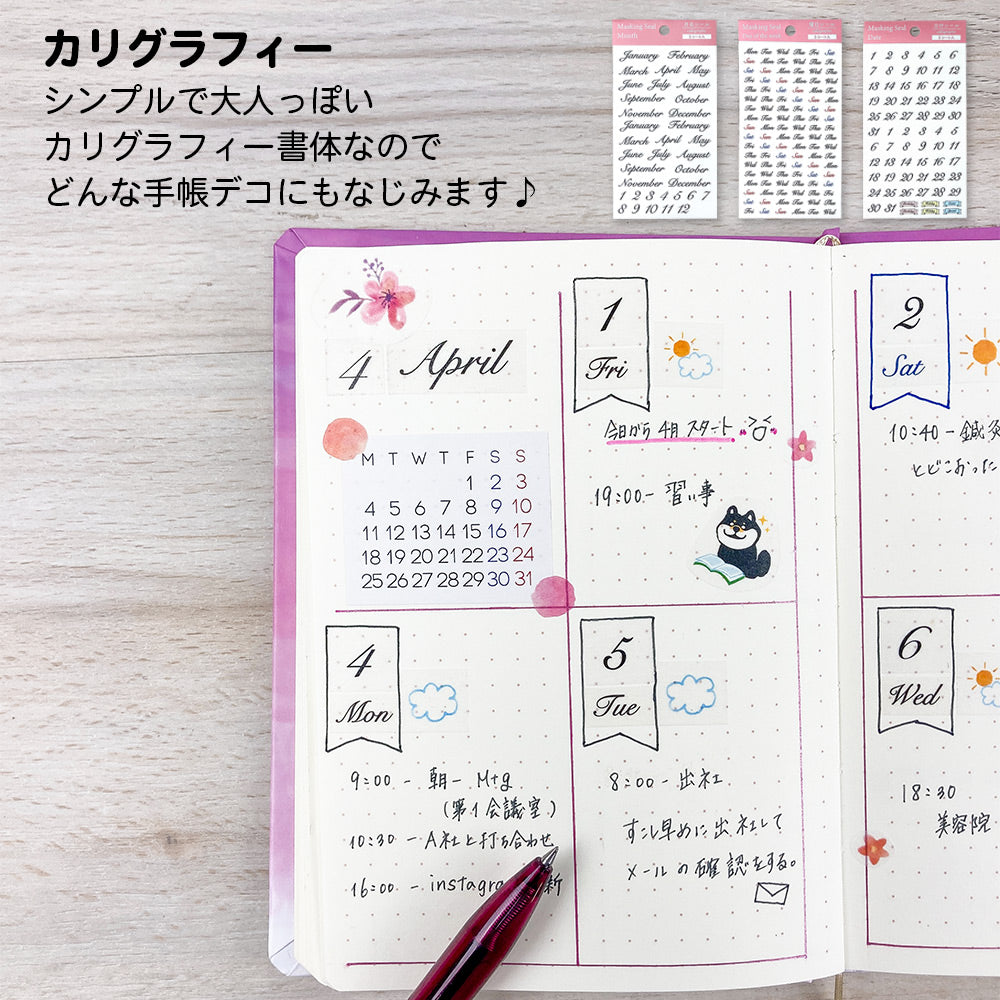 カリグラフィー
シンプルで大人っぽい
カリグラフィー書体なので
どんな手帳デコにもなじみます♪
Masking Seal
Month
January February
March April May
June July August
September October
November December
January February
March April May
June July August
September October
November December
1 2 3 4 5 6 7
8 9 10 11 12
Masking Seal
Day of the week
Masking Seal
Date
1 2 3 4 5 6
7 8 9 10 11 12
13 14 15 16 17 18
19 20 21 22 23 24
25 26 27 28 29 30
31 1 2 3 4 5
6 7 8 9 10 11
12 13 14 15 16 17
18 19 20 21 22 23
24 25 26 27 28 29
30 31
4 April
M T W T F S S
1 2 3
4 5 6 7 8 9 10
11 12 13 14 15 16 17
18 19 20 21 22 23 24
25 26 27 28 29 30 31
1
Fri
今日から 4月 スタート
19:00- 習い事
2
Sat
10:40-鍼灸
とどこおった
4
Mon
9:00 - 朝- Mtg
(第1会議室)
10:30 -A社と打ち合わせ
16:00 - instagra 新
5
Tue
8:00-出社
すこし早めに出社して
メールの確認をする。
6
Wed
18:30
美容院